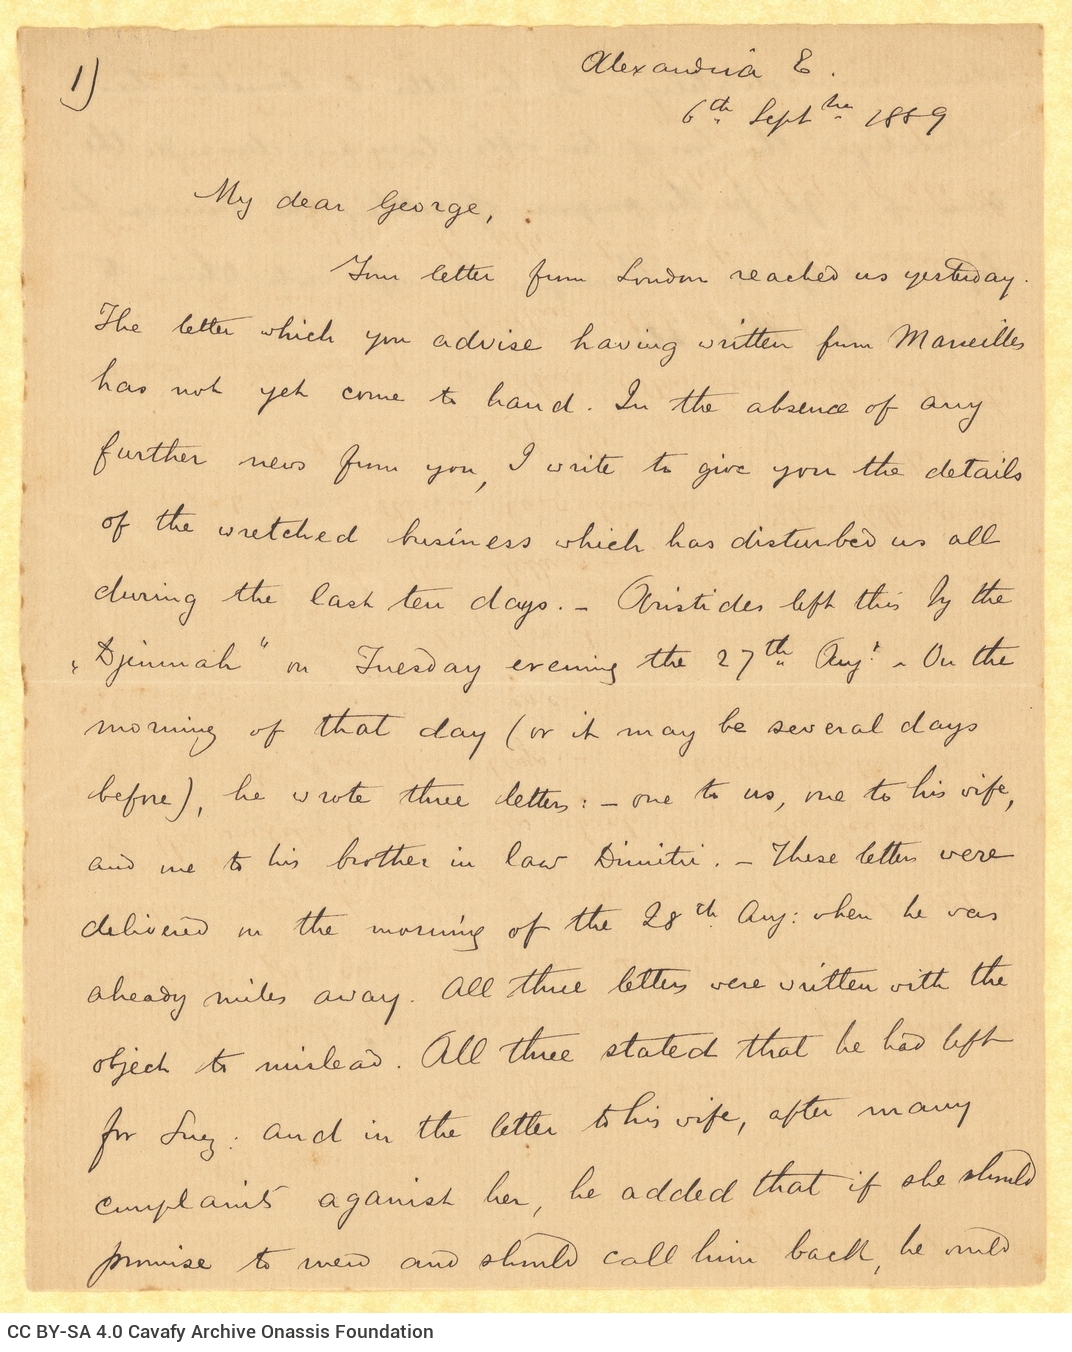 1)
Alexandria E.
6th Septber 1889
My dear George,
Your letter from London reached us yesterday.
The letter which you advise having written from Marseilles
has not yet come to hand. In the absence of any
further news from you, I write to give you the details
of the wretched business which has disturbed us all
during the last ten days. – Aristides left this by the
"Djemnah" on Tuesday evening the 27th Augt – On the
morning of that day (or it may be several days
before), he wrote three letters: – one to us, one to his wife,
and one to his brother in law Dimitri. – These letters were
delivered on the morning of the 28th Aug: when he was
already miles away. All three letters were written with the
object to mislead. All three stated that he had left
for Suez: and in the letter to his wife, after many
complaints against her, he added that if she should
promise to mend and should call him back, he would
CC BY-SA 4.0 Cavafy Archive Onassis Foundation